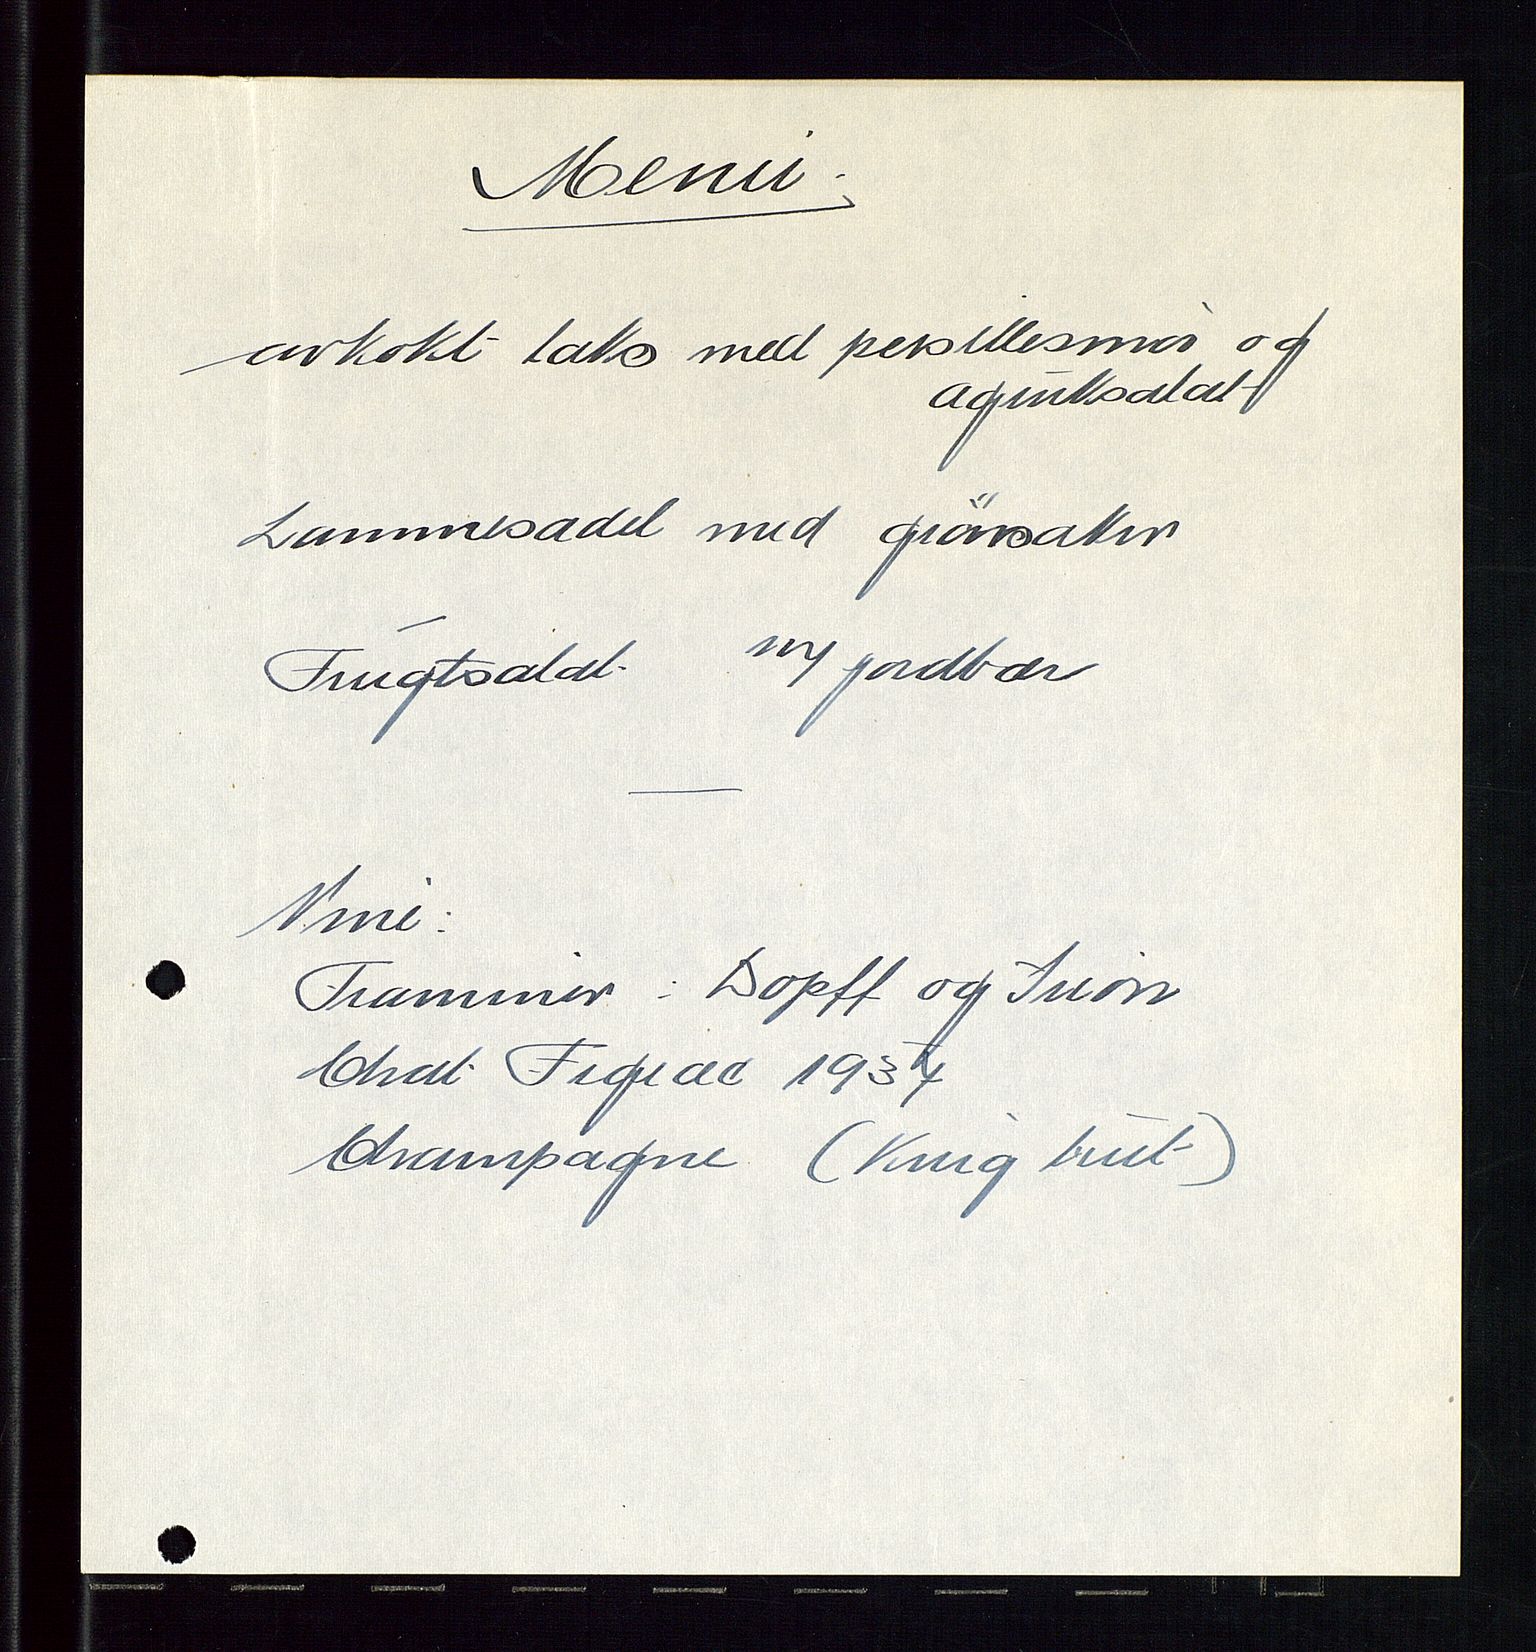 Menu.
avkokt laks med persillesmør og
agurksalat
Lammesadel med grönsaker
Frugtsalat m/ jordbær
Vine:
Traminer : Dopff og Irion
Chat Figeac 1934
Champagne (Krug brut)